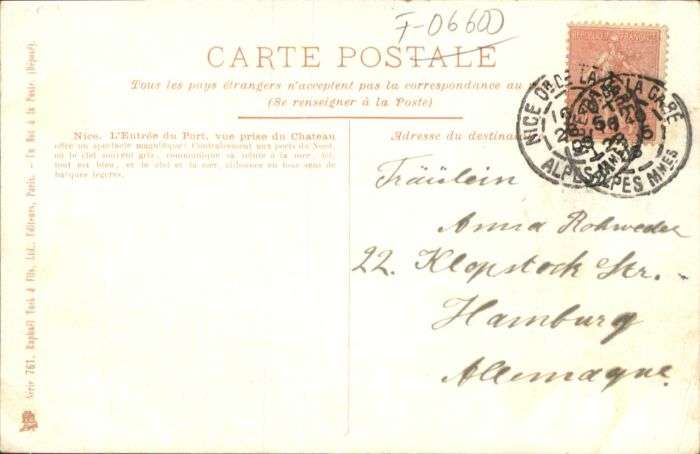 F-06600
CARTE POSTALE
Tous les pays étrangers n'acceptent pas la correspondance au
(Se renseigner à la Poste)
REPUBLIQUE FRANÇAISE
NICE
LA GARE
ALPES MMES
Nice. L'Entrée du Port, vue prise du Chateau
offre un spectacle magnifique! Contrairement aux ports du Nord,
où le ciel souvent gris, communique sa teinte à la mer, ici,
tout est bleu, et le ciel et la mer, sillonnée en tous sens de
barques légères.
Adresse du destinataire
Fräulein
Anna Rohwedel
22. Klopstock Str.
Hamburg
Allemagne
Série 761. Raphaël Tuck & Fils, Ltd., Editeurs, Paris. - Du But à la Poste (Déposé).